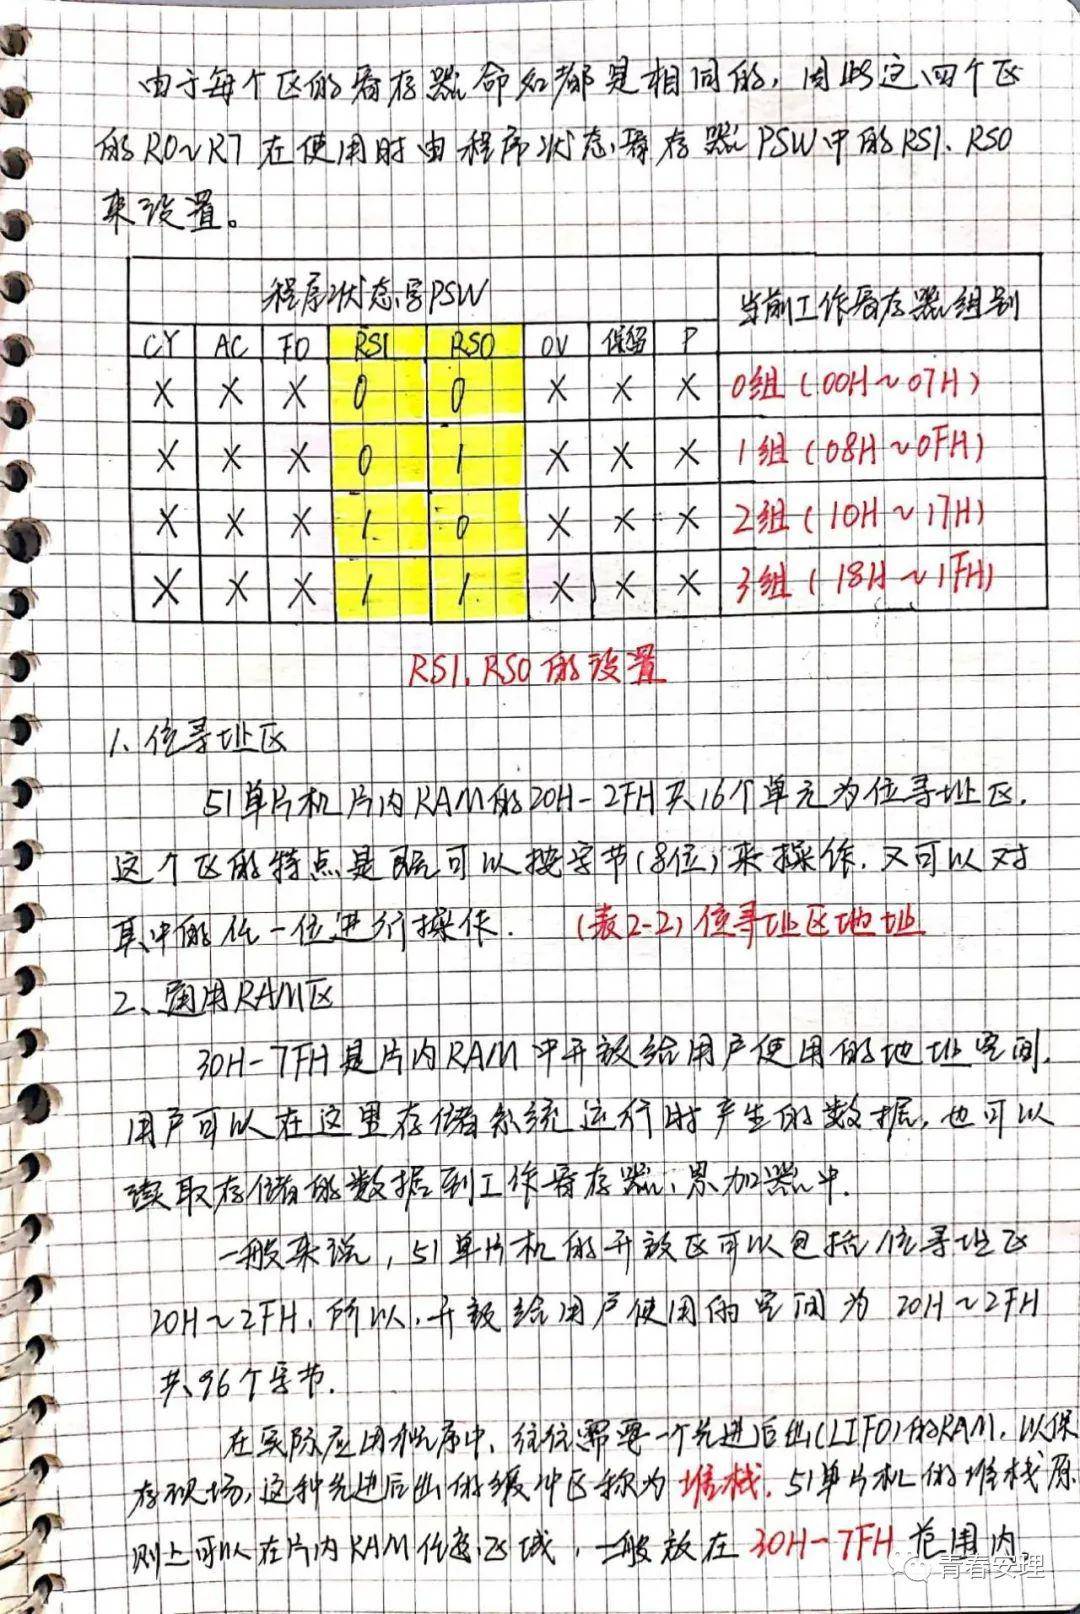 由于每个区的寄存器命名都是相同的，因此这四个区
的R0~R7在使用时由程序状态寄存器PSW中的RS1、RS0
来设置。
程序状态字PSW 当前工作寄存器组别
CY AC F0 RS1 RS0 OV 保留 P
× × × 0 0 × × × 0组(00H~07H)
× × × 0 1 × × × 1组(08H~0FH)
× × × 1 0 × × × 2组(10H~17H)
× × × 1 1 × × × 3组(18H~1FH)
RS1、RS0的设置
1、位寻址区
51单片机片内RAM的20H-2FH共16个单元为位寻址区.
这个区的特点是既可以按字节(8位)来操作.又可以对
其中的任一位进行操作. (表2-2)位寻址区地址
2、通用RAM区
30H-7FH是片内RAM中开放给用户使用的地址空间.
用户可以在这里存储系统运行时产生的数据,也可以
读取存储的数据到工作寄存器、累加器中.
一般来说,51单片机的开放区可以包括位寻址区
20H~2FH.所以.开放给用户使用的空间为20H~2FH
共96个字节.
在实际应用程序中,往往需要一个先进后出(LIFO)的RAM.以保
存现场,这种先进后出的缓冲区称为堆栈.51单片机的堆栈原
则上可以在片内RAM任意区域,一般放在30H-7FH范围内.
青春安理